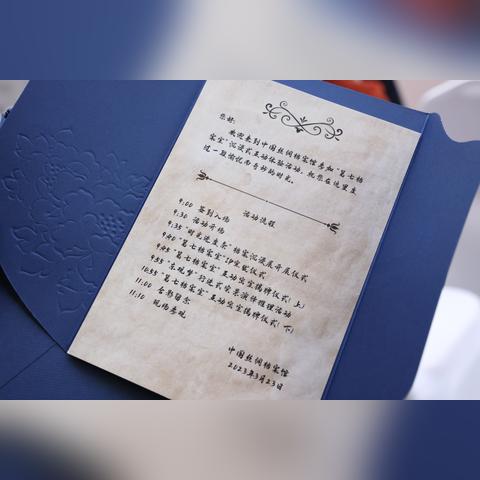 您好:
欢迎来到中国丝绸档案馆参加“第七档
案室”沉浸式互动体验活动,祝您在这里度
过一段愉悦而奇妙的时光。
活动流程
9:00 签到入场
9:30 活动开场
9:35 “时光进生素”档案沉浸展开展仪式
9:40 “第七档案室”IP发布仪式
9:45 “第七档案室”互动空间揭牌仪式(上)
9:55 “苏城梦”行进式实景演绎推理活动
10:55 “第七档案室”互动空间揭牌仪式(下)
11:00 合影留念
11:10 现场参观
中国丝绸档案馆
2023年3月23日